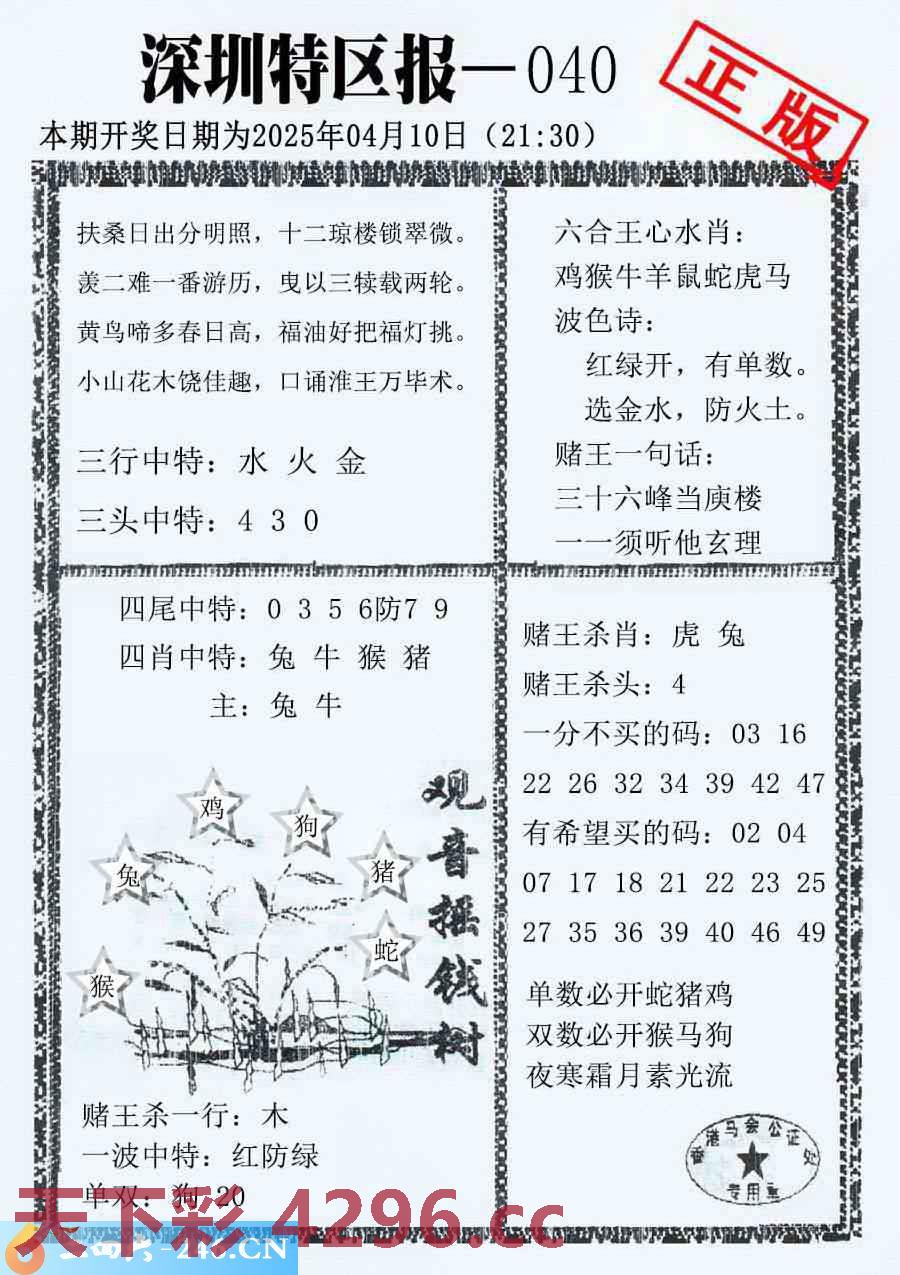 深圳特区报—040
正版
本期开奖日期为2025年04月10日（21:30）
扶桑日出分明照，十二琼楼锁翠微。
羡二难一番游历，曳以三犊载两轮。
黄鸟啼多春日高，福油好把福灯挑。
小山花木饶佳趣，口诵淮王万毕术。
三行中特：水 火 金
三头中特：4 3 0
六合王心水肖：
鸡猴牛羊鼠蛇虎马
波色诗：
红绿开，有单数。
选金水，防火土。
赌王一句话：
三十六峰当庾楼
一一须听他玄理
四尾中特：0 3 5 6防7 9
四肖中特：兔 牛 猴 猪
主：兔 牛
鸡
狗
兔
猪
蛇
猴
观音摇钱树
赌王杀一行：木
一波中特：红防绿
单双：狗 20
赌王杀肖：虎 兔
赌王杀头：4
一分不买的码：03 16
22 26 32 34 39 42 47
有希望买的码：02 04
07 17 18 21 22 23 25
27 35 36 39 40 46 49
单数必开蛇猪鸡
双数必开猴马狗
夜寒霜月素光流
香港马会公证处
专用章
天下彩4296.cc
-246.CN